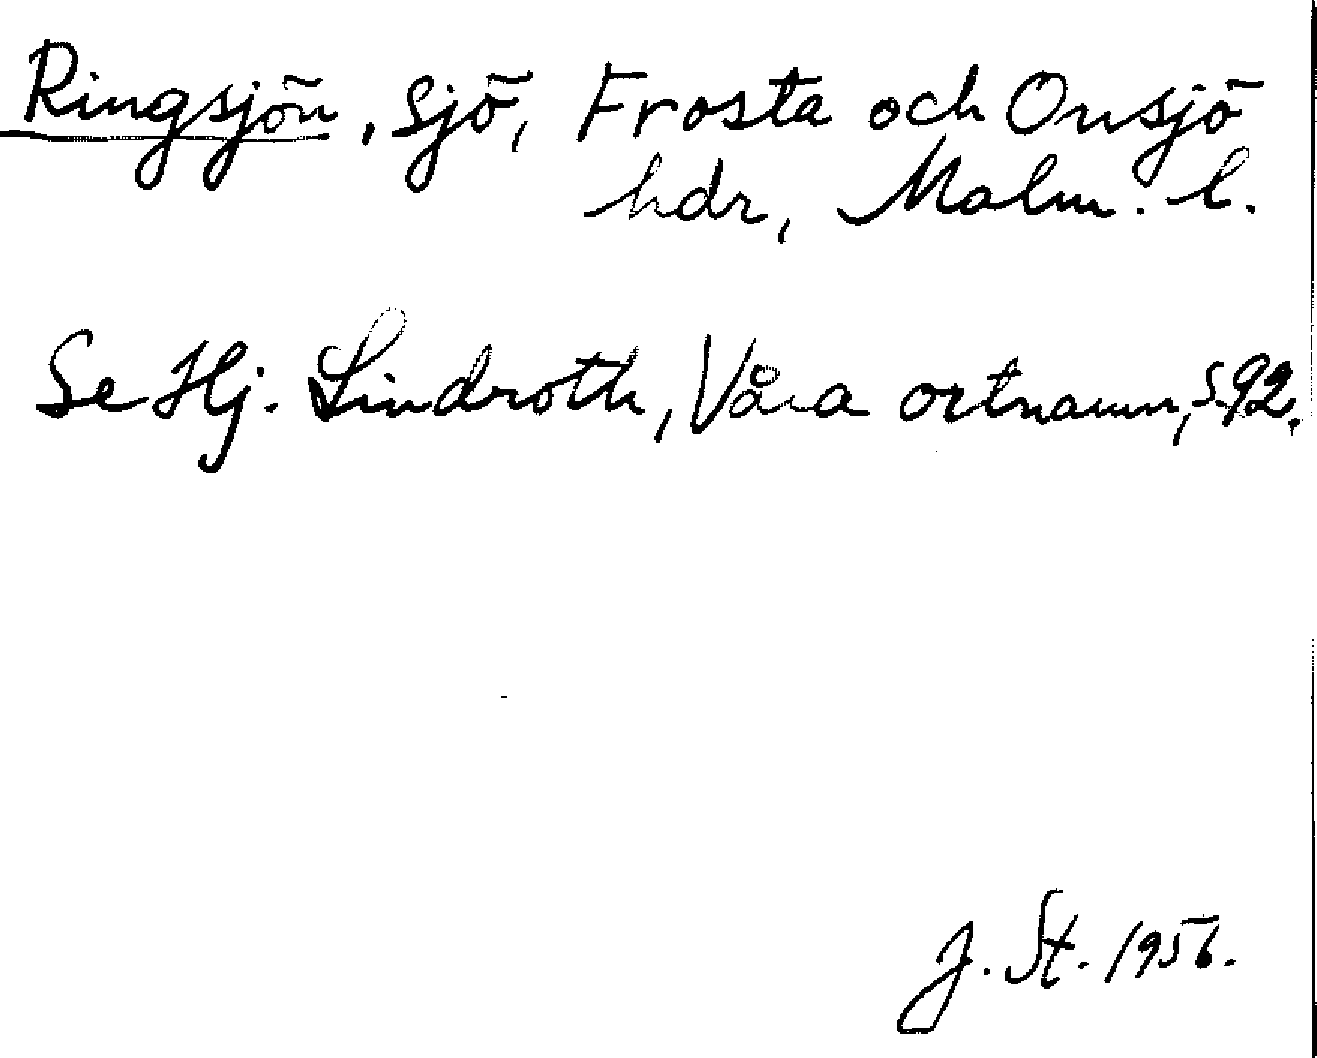 Ringsjön, sjö, Frosta och Onsjö
hdr, Malm. l.
Se Hj. Lindroth, Våra ortnamn, s. 92.
J. St. 1956.